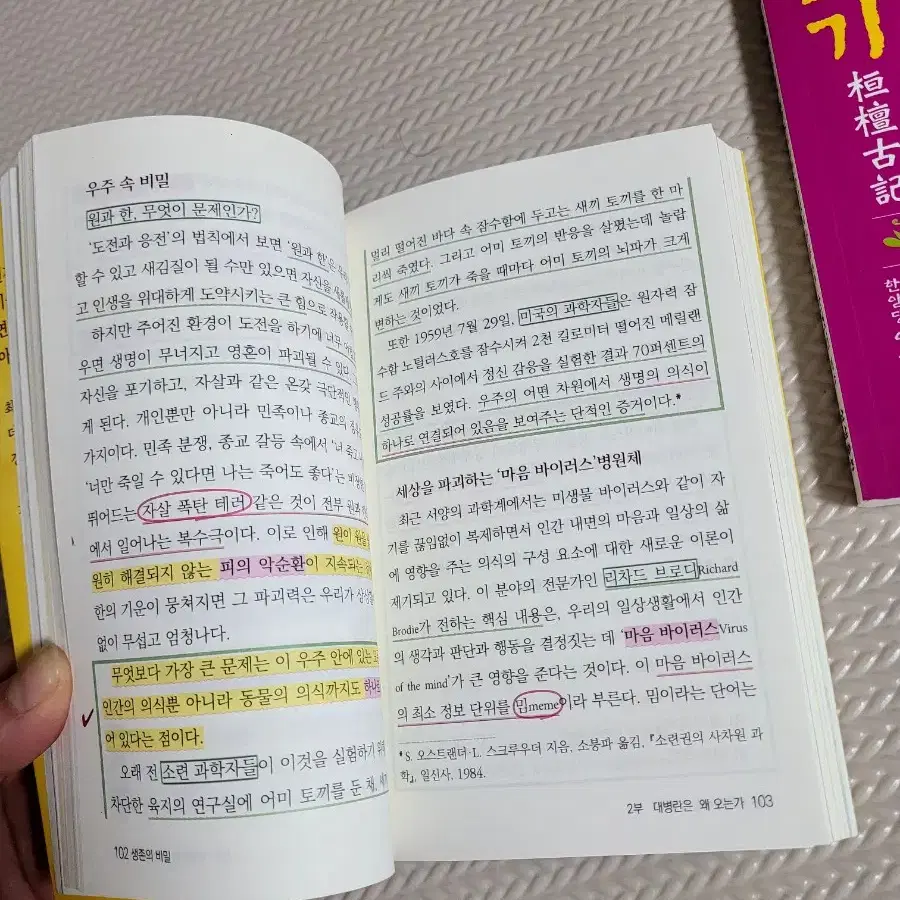 우주 속 비밀
원과 한, 무엇이 문제인가?
'도전과 응전'의 법칙에서 보면 '원과 한'은
할 수 있고 새김질이 될 수만 있으면 자신을
고 인생을 위대하게 도약시키는 큰 힘으로
하지만 주어진 환경이 도전을 하기에 너무
우면 생명이 무너지고 영혼이 파괴될 수 있다.
자신을 포기하고, 자살과 같은 온갖 극단적인
게 된다. 개인뿐만 아니라 민족이나 종교의
가지이다. 민족 분쟁, 종교 갈등 속에서 '너 죽고
'너만 죽일 수 있다면 나는 죽어도 좋다'는
뛰어드는 자살 폭탄 테러 같은 것이 전부
에서 일어나는 복수극이다. 이로 인해 원이
원히 해결되지 않는 피의 악순환이 지속되는
한의 기운이 뭉쳐지면 그 파괴력은 우리가
없이 무섭고 엄청나다.
무엇보다 가장 큰 문제는 이 우주 안에 있는
인간의 의식뿐 아니라 동물의 의식까지도
어 있다는 점이다.
오래 전 소련 과학자들이 이것을 실험하기
차단한 육지의 연구실에 어미 토끼를 둔 채,
102 생존의 비밀
멀리 떨어진 바다 속 잠수함에 두고는 새끼 토끼를 한 마
리씩 죽였다. 그리고 어미 토끼의 반응을 살폈는데 놀랍
게도 새끼 토끼가 죽을 때마다 어미 토끼의 뇌파가 크게
변하는 것이었다.
또한 1959년 7월 29일, 미국의 과학자들은 원자력 잠
수함 노틸러스호를 잠수시켜 2천 킬로미터 떨어진 메릴랜
드 주와의 사이에서 정신 감응을 실험한 결과 70퍼센트의
성공률을 보였다. 우주의 어떤 차원에서 생명의 의식이
하나로 연결되어 있음을 보여주는 단적인 증거이다.*
세상을 파괴하는 '마음 바이러스' 병원체
최근 서양의 과학계에서는 미생물 바이러스와 같이 자
기를 끊임없이 복제하면서 인간 내면의 마음과 일상의 삶
에 영향을 주는 의식의 구성 요소에 대한 새로운 이론이
제기되고 있다. 이 분야의 전문가인 리차드 브로디Richard
Brodie가 전하는 핵심 내용은, 우리의 일상생활에서 인간
의 생각과 판단과 행동을 결정짓는 데 '마음 바이러스Virus
of the mind'가 큰 영향을 준다는 것이다. 이 마음 바이러스
의 최소 정보 단위를 밈meme이라 부른다. 밈이라는 단어는
*S. 오스트랜더·L. 스크루우더 지음, 소붕파 옮김, 『소련권의 사차원 과
학』, 일신사, 1984.
2부 대병란은 왜 오는가 103
기
桓檀古記